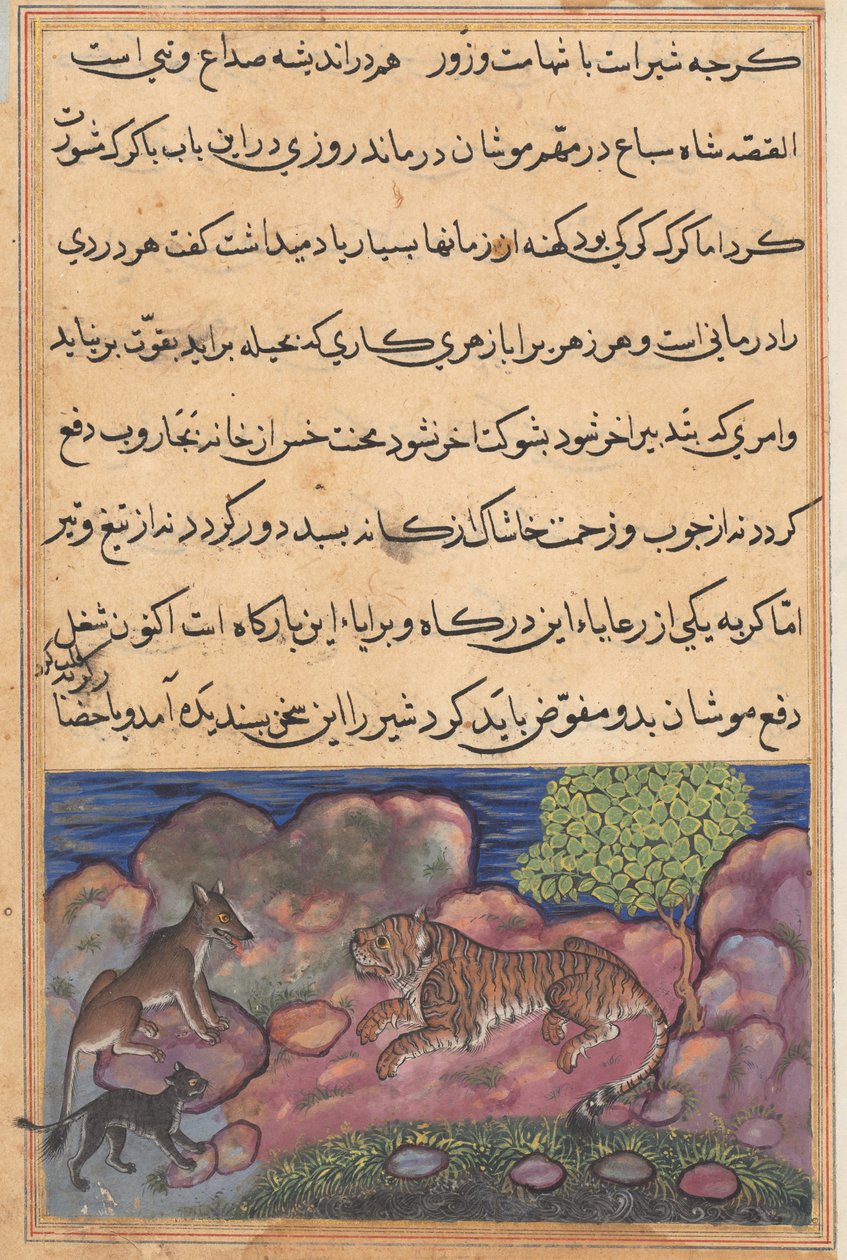 کرجه شیر است با شهامت وزور هم در اندیشه صداع وتبی است
القصّه شاه سباع در مهّم موشان درماند روزی در این باب با کرک مشورت
کرد اما کرک کرکی بود کهنه از زمانها بسیار یاد میداشت کفت هر دردی
را درمانی است و هر زهر برا بازهری کاری که بحیله براید بقوّت بر نیاید
وامری که بتدبیر اخر شود بشوکت اخر نشود محنت خس از خانه بجاروب دفع
کردد نه از جوب و زحمت خاشاک از کانه بسبد دور کردد نه از تیغ وتیر
امّا کربه یکی از رعایاء این درکاه و برایاء این بارکاه است اکنون شغل
دفع موشان بدو مفوّض باید کرد شیر را این سخن بسندیده آمد و باحضار
کربه